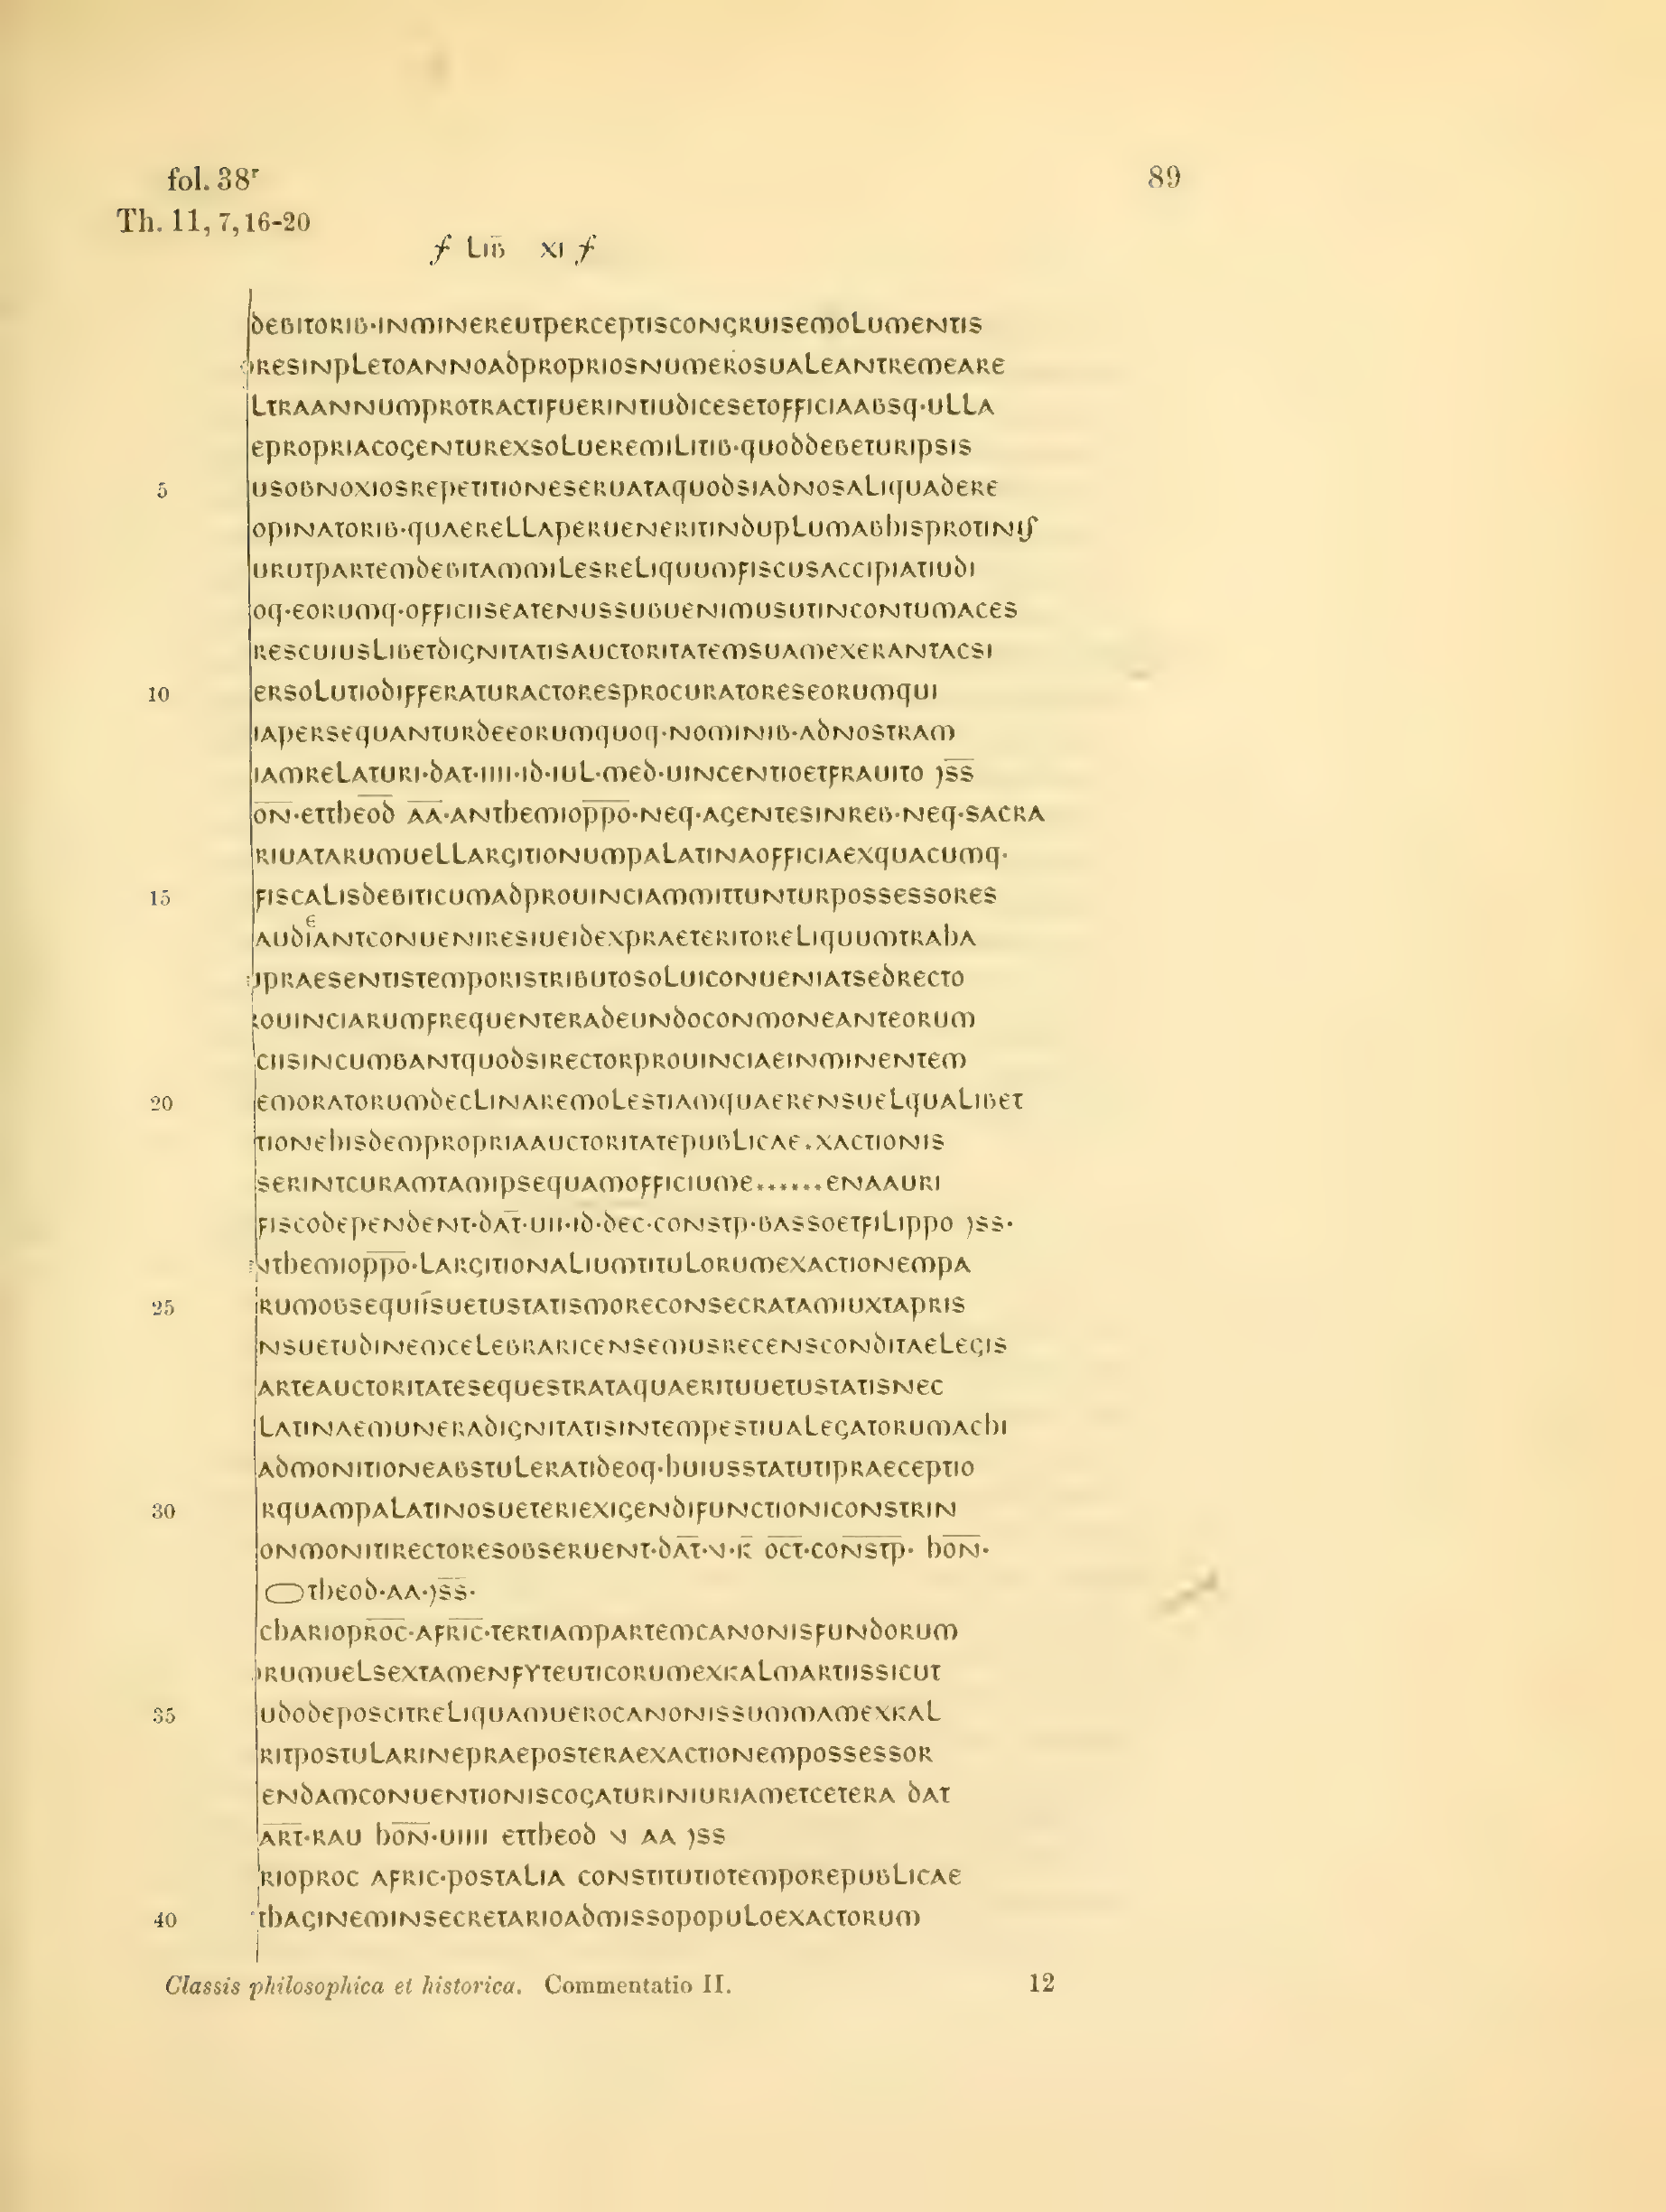 fol. 38ʳ
89
Th. 11, 7, 16-20
ƒ LIB̄ XI ƒ
DEBITORIB·INMINEREUTPERCEPTISCONGRUISEMOLUMENTIS
RESINPLETOANNOADPROPRIOSNUMEROSUALEANTREMEARE
LTRAANNUMPROTRACTIFUERINTIUDICESETOFFICIAABSQ·ULLA
EPROPRIACOGENTUREXSOLUEREMILITIB·QUODDEBETURIPSIS
5 USOBNOXIOSREPETITIONESERUATAQUODSIADNOSALIQUADERE
OPINATORIB·QUAERELLAPERUENERITINDUPLUMABHISPROTINUS
URUTPARTEMDEBITAMMILESRELIQUUMFISCUSACCIPIATIUDI
OQ·EORUMQ·OFFICIISEATENUSSUBUENIMUSUTINCONTUMACES
RESCUIUSLIBETDIGNITATISAUCTORITATEMSUAMEXERANTACSI
10 ERSOLUTIODIFFERATURACTORESPROCURATORESEORUMQUI
IAPERSEQUANTURDEEORUMQUOQ·NOMINIB·ADNOSTRAM
IAMRELATURI·DAT·IIII·ID·IUL·MED·UINCENTIOETFRAUITO )S̄S̄
ŌN̄·ETTHEOD̄ ĀĀ·ANTHEMIOP̄P̄Ō·NEQ·AGENTESINREB·NEQ·SACRA
RIUATARUMUELLARGITIONUMPALATINAOFFICIAEXQUACUMQ·
15 FISCALISDEBITICUMADPROUINCIAMMITTUNTURPOSSESSORES
AUDIᵉANTCONUENIRESIUEIDEXPRAETERITORELIQUUMTRAHA
IPRAESENTISTEMPORISTRIBUTOSOLUICONUENIATSEDRECTO
ROUINCIARUMFREQUENTERADEUNDOCONMONEANTEORUM
CIISINCUMBANTQUODSIRECTORPROUINCIAEINMINENTEM
20 EMORATORUMDECLINAREMOLESTIAMQUAERENSUELQUALIBET
TIONEHISDEMPROPRIAAUCTORITATEPUBLICAE.XACTIONIS
SERINTCURAMTAMIPSEQUAMOFFICIUME.......ENAAURI
FISCODEPENDENT·DAT̄·UII·ID·DEC·CONSTP·BASSOETFILIPPO )SS·
NTHEMIOP̄P̄Ō·LARGITIONALIUMTITULORUMEXACTIONEMPA
25 RUMOBSEQUIISUETUSTATISMORECONSECRATAMIUXTAPRIS
NSUETUDINEMCELEBRARICENSEMUSRECENSCONDITAELEGIS
ARTEAUCTORITATESEQUESTRATAQUAERITUUETUSTATISNEC
LATINAEMUNERADIGNITATISINTEMPESTIUALEGATORUMACHI
ADMONITIONEABSTULERATIDEOQ·HUIUSSTATUTIPRAECEPTIO
30 RQUAMPALATINOSUETERIEXIGENDIFUNCTIONICONSTRIN
ONMONITIRECTORESOBSERUENT·DĀT̄·V·K̄ ŌC̄T̄·CON̄S̄T̄P̄· HŌN̄·
THEOD·AA·)S̄S̄·
CHARIOP̄R̄ŌC̄·AFR̄ĪC̄·TERTIAMPARTEMCANONISFUNDORUM
RUMUELSEXTAMENFYTEUTICORUMEXKALMARTIISSICUT
35 UDODEPOSCITRELIQUAMUEROCANONISSUMMAMEXKAL
RITPOSTULARINEPRAEPOSTERAEXACTIONEMPOSSESSOR
ENDAMCONUENTIONISCOGATURINIURIAMETCETERA DAT
ĀR̄T̄·RAU HŌN̄·UIIII ETTHEOD V AA )SS
RIOPROC AFRIC·POSTALIA CONSTITUTIOTEMPOREPUBLICAE
40 THAGINEMINSECRETARIOADMISSOPOPULOEXACTORUM
Classis philosophica et historica. Commentatio II.
12